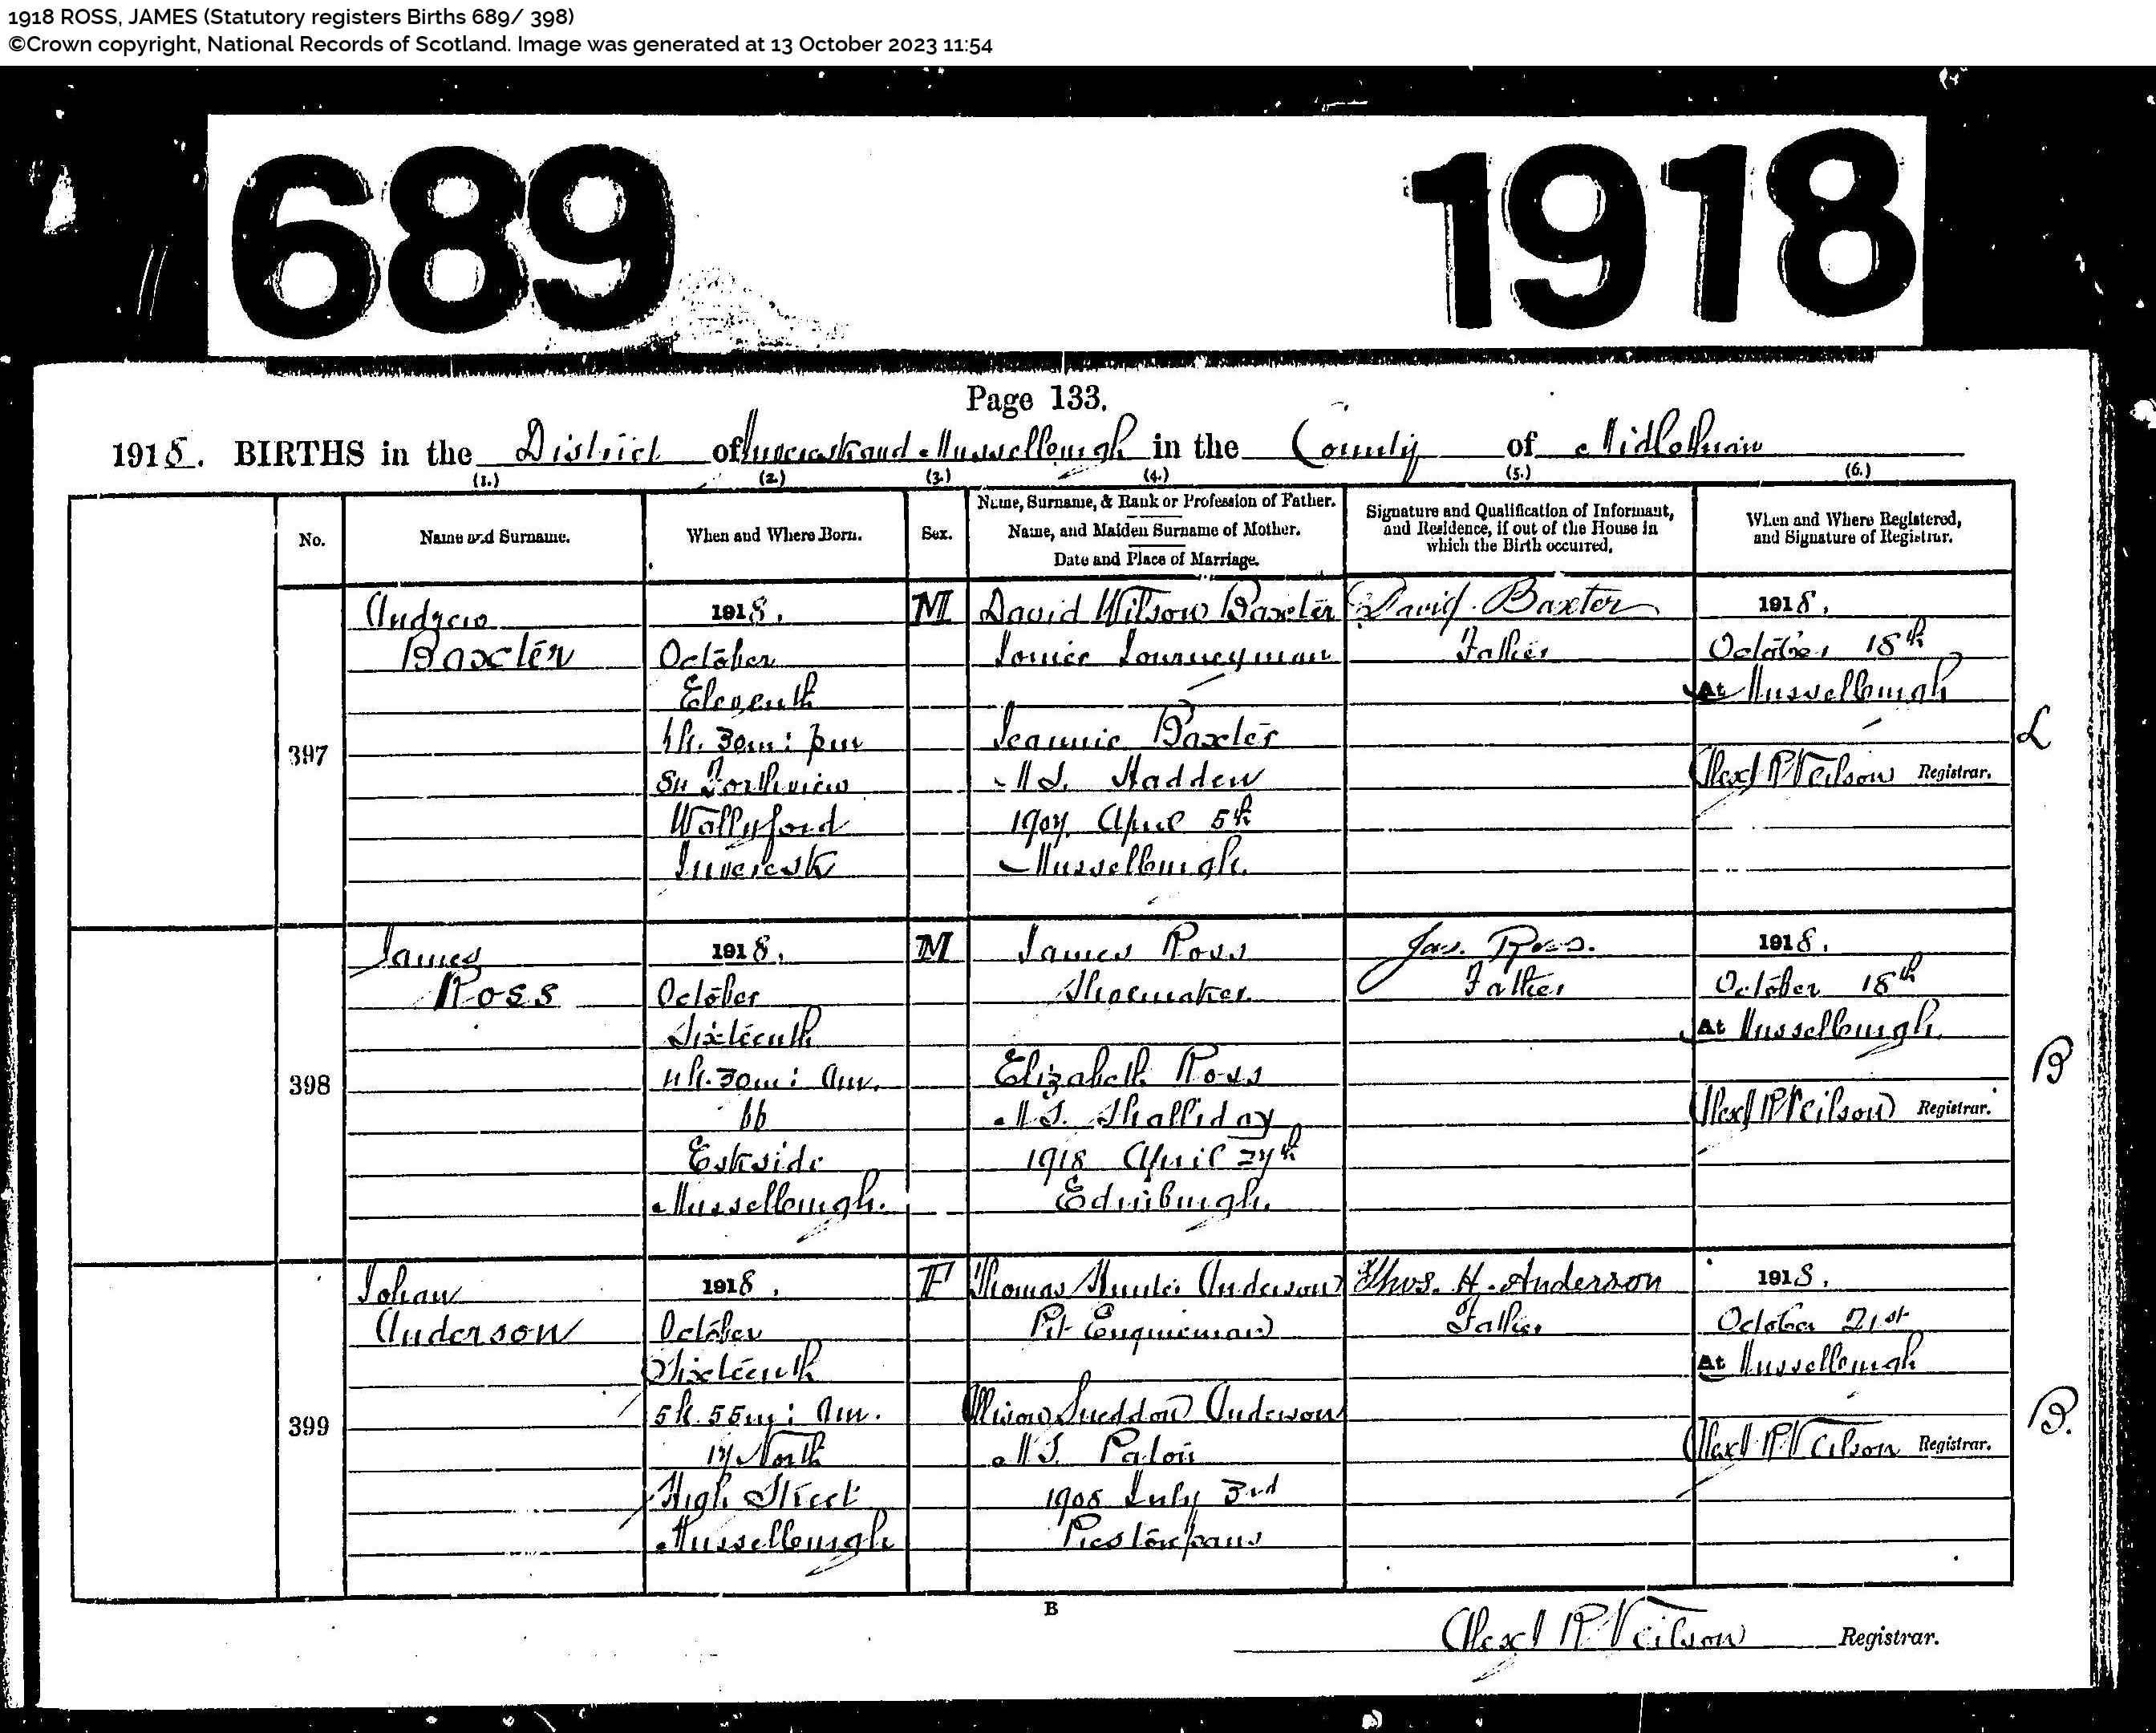 1918 ROSS, JAMES (Statutory registers Births 689/ 398)
©Crown copyright, National Records of Scotland. Image was generated at 13 October 2023 11:54
689 1918
Page 133.
1918. BIRTHS in the District of Inveresk and Musselburgh in the County of Midlothian
(1.) (2.) (3.) (4.) (5.) (6.)
No.
Name and Surname.
When and Where Born.
Sex.
Name, Surname, & Rank or Profession of Father.
Name, and Maiden Surname of Mother.
Date and Place of Marriage.
Signature and Qualification of Informant,
and Residence, if out of the House in
which the Birth occurred.
When and Where Registered,
and Signature of Registrar.
397
Andrew
Baxter
1918.
October
Eleventh
30m: pm
Forthview
Wallyford
Inveresk
M
David Wilson Baxter
Journeyman
Jeannie Baxter
M.S. Hadden
1907 April 5th
Musselburgh.
David Baxter
Father
1918.
October 18th
At Musselburgh
Alexr R Neilson Registrar.
L
398
James
Ross
1918.
October
Sixteenth
11h. 30m: am.
66
Eskside
Musselburgh.
M
James Ross
Shoemaker
Elizabeth Ross
M.S. Thalliday
1918 April 27th
Edinburgh.
Jas. Ross.
Father
1918.
October 18th
At Musselburgh.
Alexr R Neilson Registrar.
B
399
Johan
Anderson
1918.
October
Sixteenth
5h. 55m: am.
17 North
High Street
Musselburgh
F
Thomas Hunter Anderson
Pit Engineman
Alison Sneddon Anderson
M.S. Paton
1908 July 3rd
Prestonpans
Thos. H. Anderson
Father
1918.
October 21st
At Musselburgh
Alexr R Neilson Registrar.
B.
B
Alexr R Neilson Registrar.